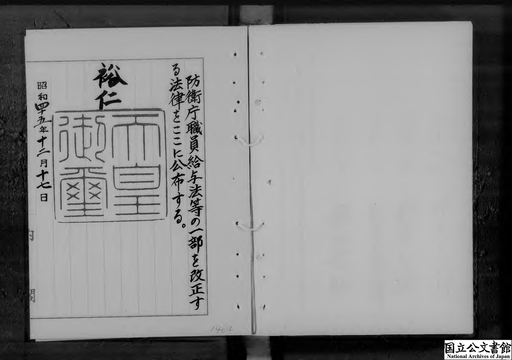 防衛庁職員給与法等の一部を改正す
る法律をここに公布する。
裕仁
天皇
御璽
昭和四十五年十二月十七日
内閣
国立公文書館
National Archives of Japan